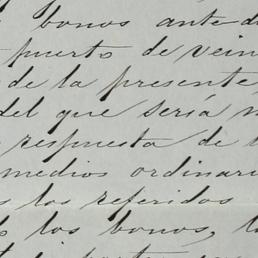 bonos ante di
puerto de vein
de la presente,
del que sería n
respuesta de
medios ordinari
los referidos
los bonos, la